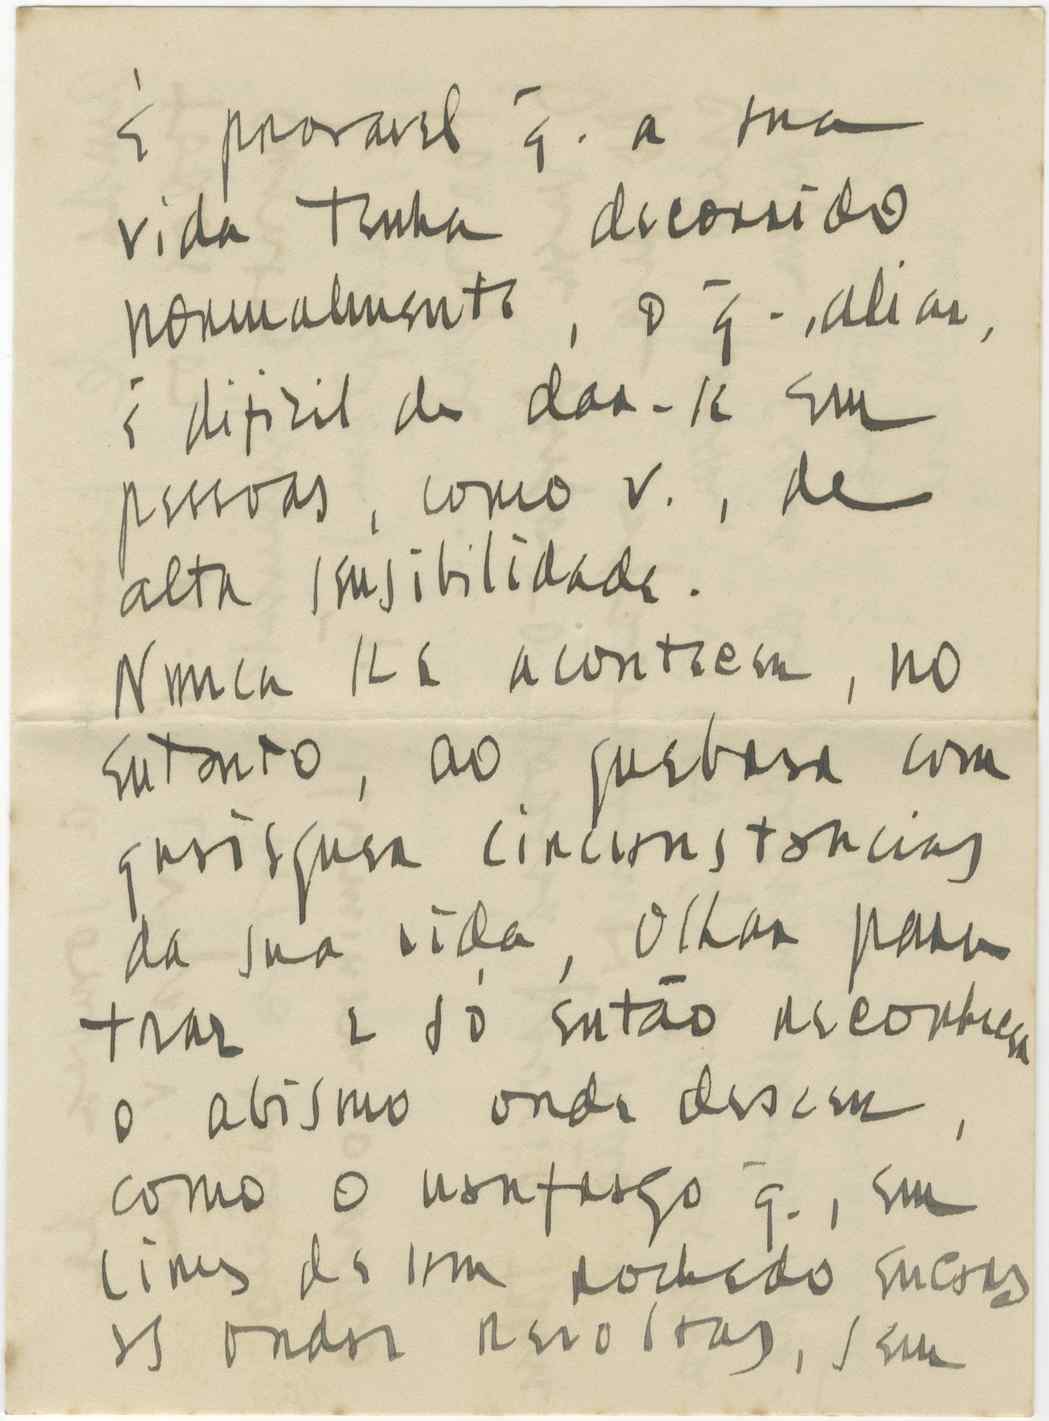 É provavel q̄. a sua
vida tenha decorrido
normalmente, o q̄., alias,
é dificil de dar-se em
pessoas, como v., de
alta sensibilidade.
Nunca lhe aconteceu, no
entanto, ao quebrar com
quaisquer circunstancias
da sua vida, olhar para
traz e só então reconhecer
o abismo onde desceu,
como o naufrago q̄., em
cima de um rochedo encara
as ondas revoltas, sem